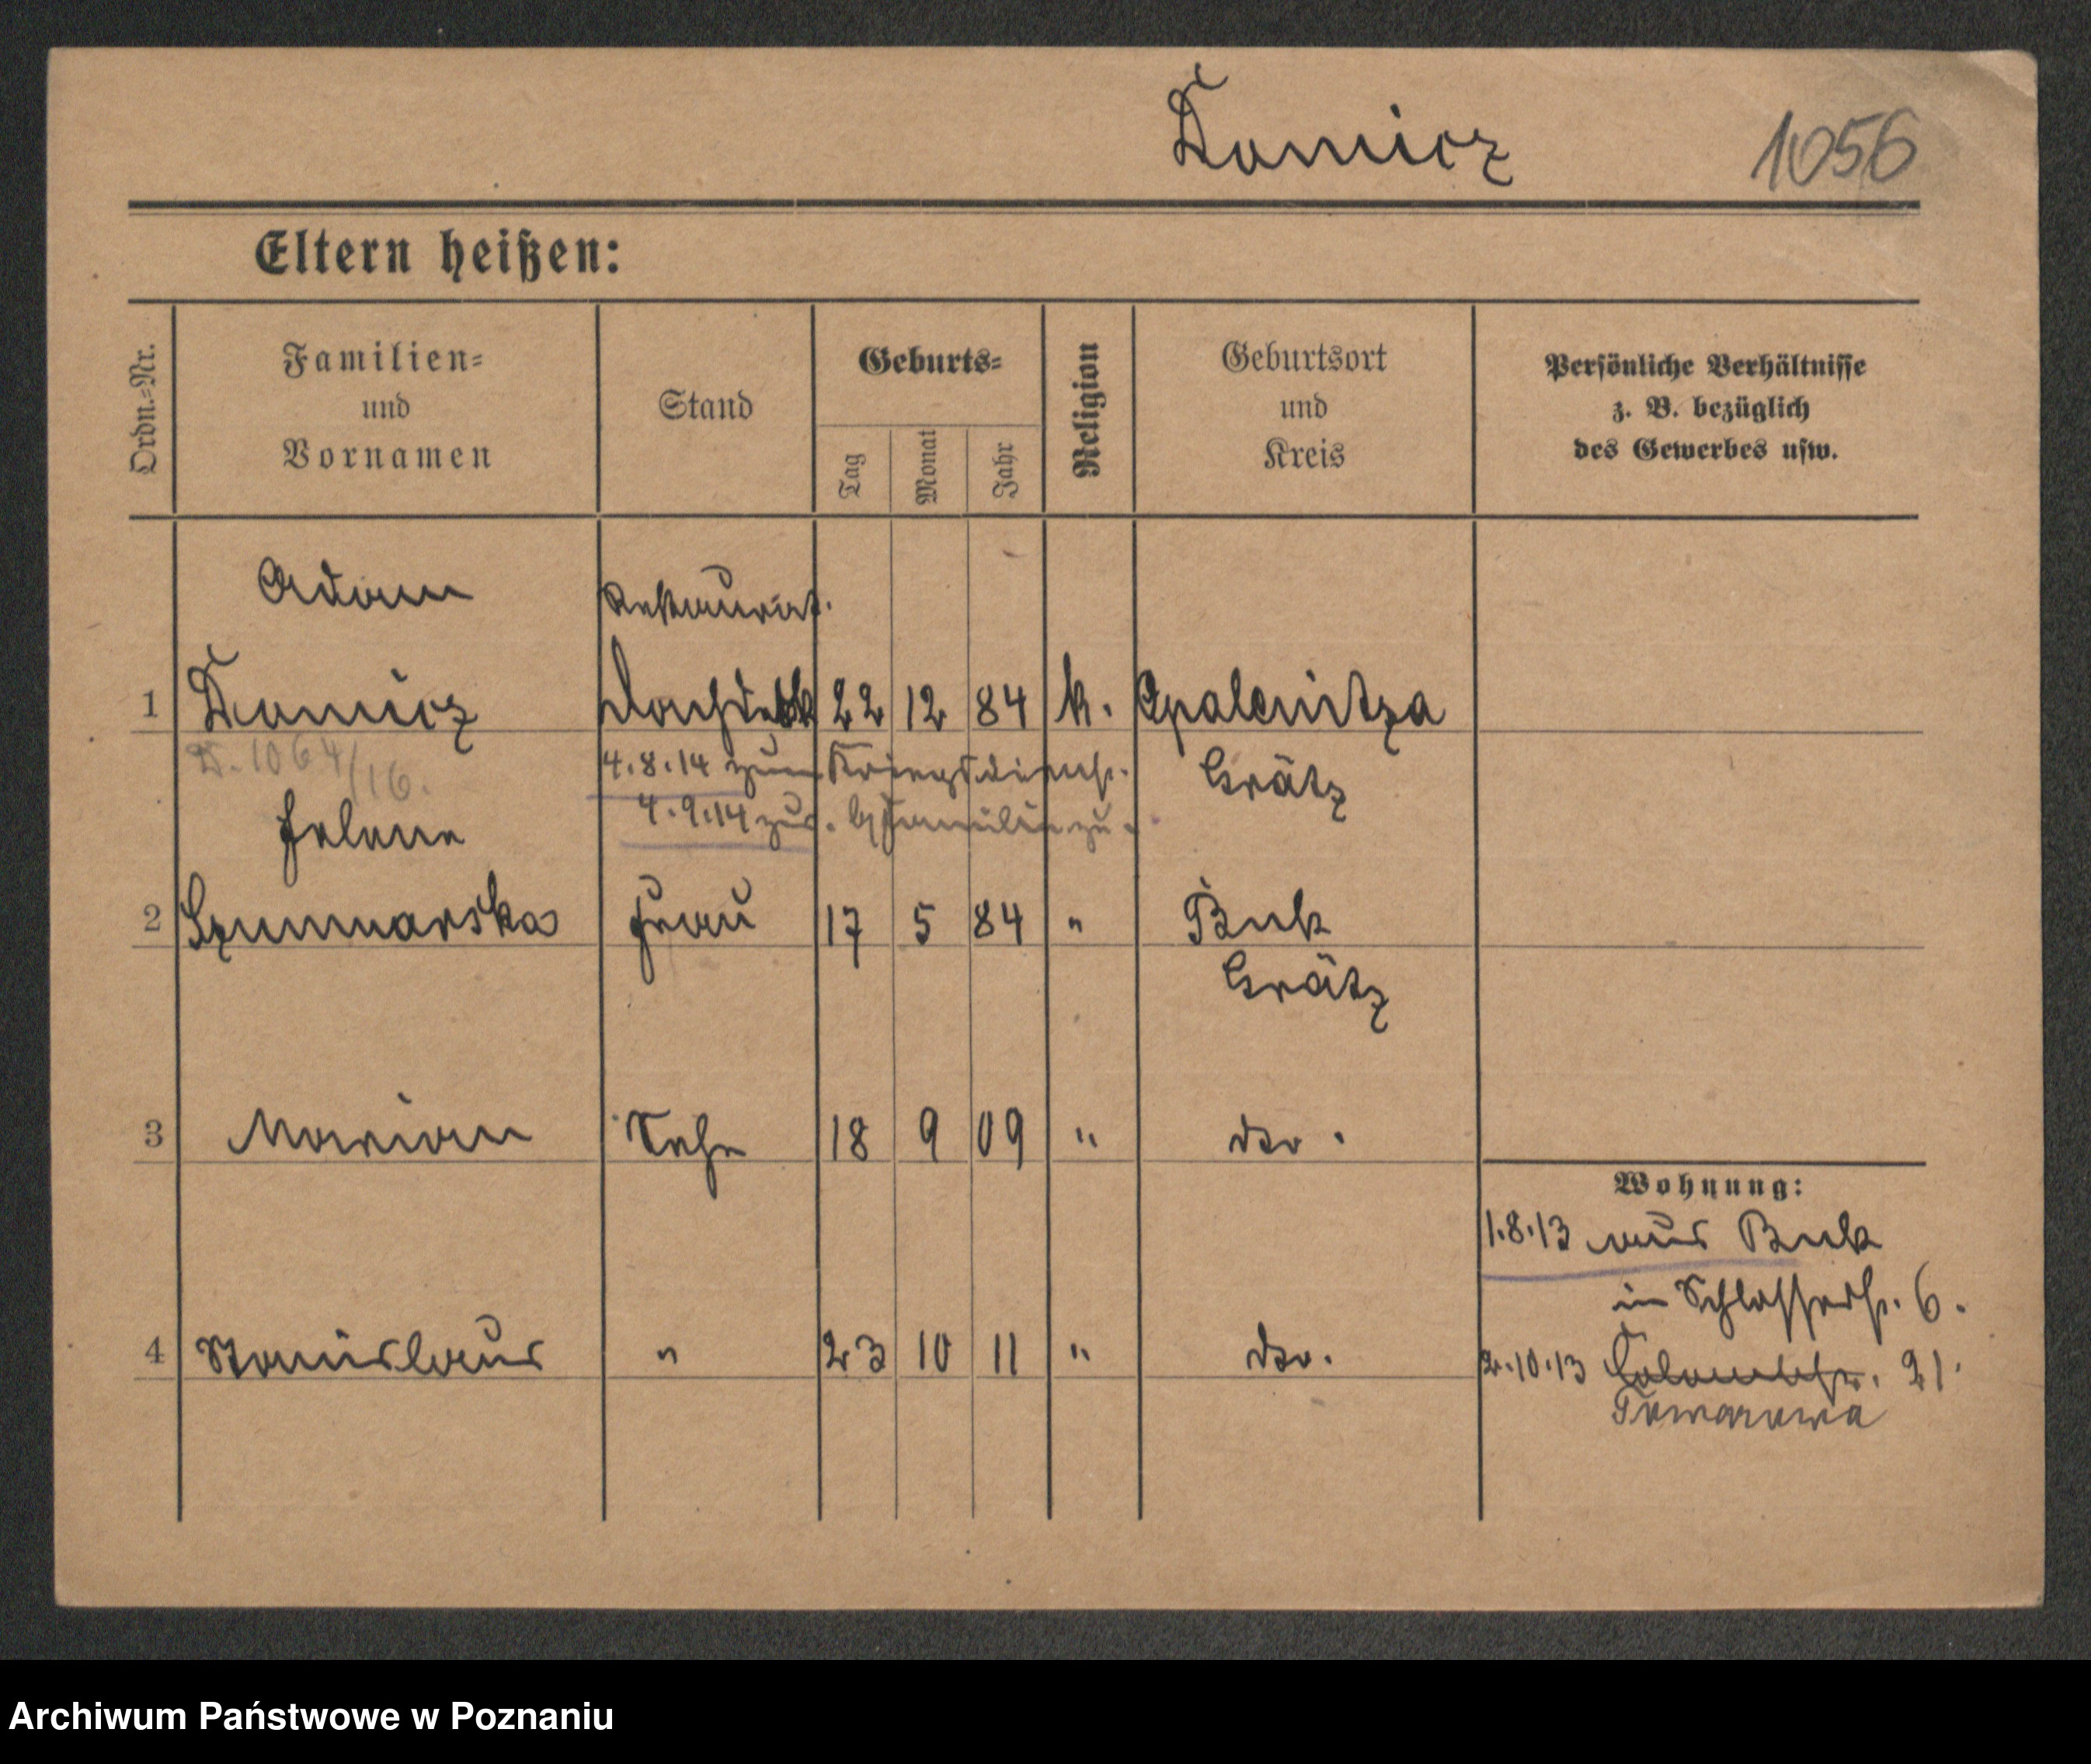 Tomicz 1056
Eltern heißen:
Ordn.-Nr. Familien- und Vornamen Stand Geburts- Tag Monat Jahr Religion Geburtsort und Kreis Persönliche Verhältnisse z. B. bezüglich des Gewerbes usw.
Adam Restaurat.
1 Tomicz 22 12 84 k. Opalenitza
1064/16. 4.8.14 zum Kriegsdienst. Grätz
Helene 4.9.14 zur. Familie zu.
2 Szumnarska Frau 17 5 84 " Buk
Grätz
3 Marian Sohn 18 9 09 " dto.
Wohnung:
1.8.13 aus Buk
in Schlosserstr. 6.
4 Stanislaus " 23 10 11 " dto. 2.10.13 21.
Towarowa
Archiwum Państwowe w Poznaniu